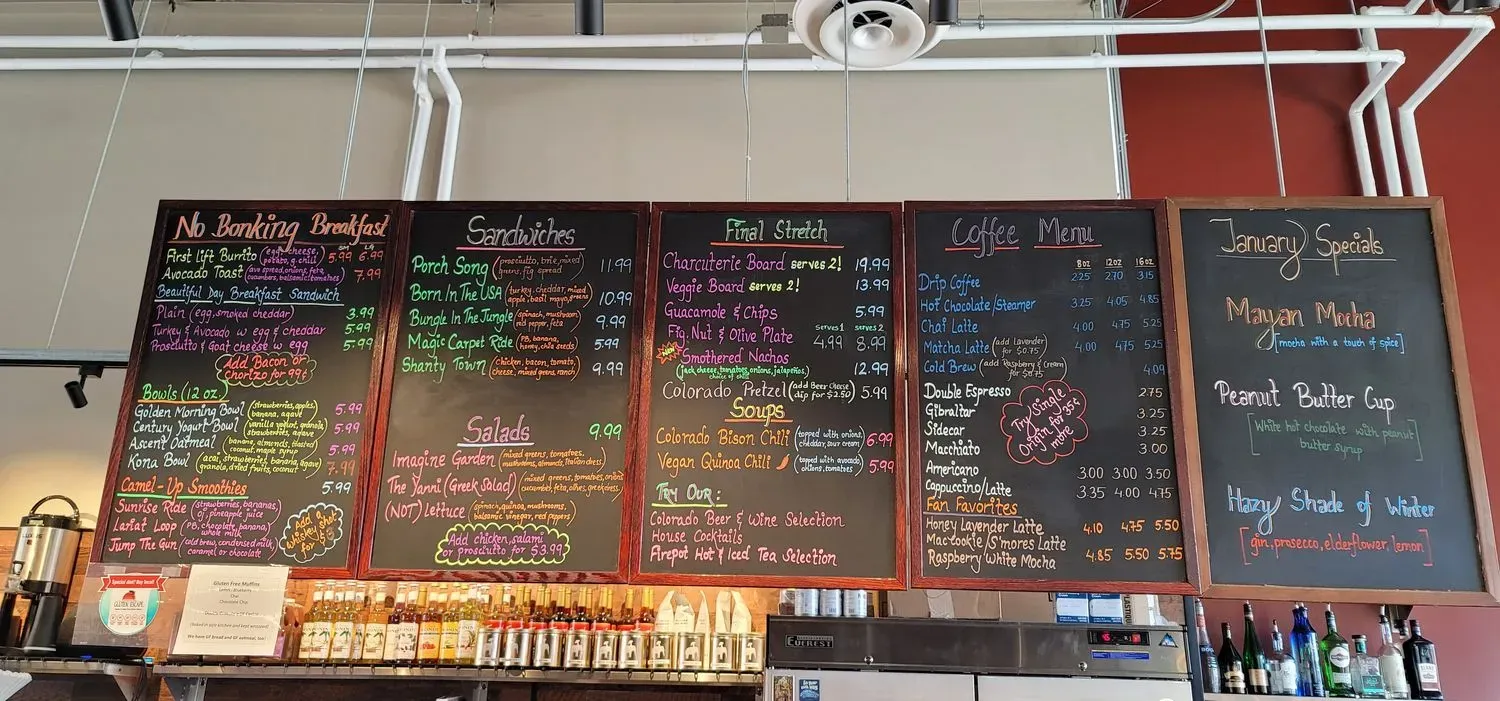 No Bonking Breakfast
SM LG
First Lift Burrito (egg, cheese, potato, g. chili) 5.99 6.99
Avocado Toast (avo spread, onions, feta, cucumbers, balsamic, tomatoes) 7.99
Beautiful Day Breakfast Sandwich
Plain (egg, smoked cheddar) 3.99
Turkey & Avocado w egg & cheddar 5.99
Prosciutto & Goat cheese w egg 5.99
Add Bacon or
chorizo for 99¢
Bowls (12 oz.)
Golden Morning Bowl (strawberries, apples, banana, agave) 5.99
Century Yogurt Bowl (vanilla yogurt, granola, strawberries, agave) 5.99
Ascent Oatmeal (banana, almonds, toasted coconut, maple syrup) 5.99
Kona Bowl (acai, strawberries, banana, agave, granola, dried fruits, coconut) 7.99
Camel-Up Smoothies 5.99
Sunrise Ride (strawberries, bananas, oj, pineapple juice)
Lariat Loop (PB, chocolate, banana, whole milk)
Jump The Gun (cold brew, condensed milk, caramel or chocolate)
Add a
whiskey shot
for
Sandwiches
Porch Song (prosciutto, brie, mixed greens, fig spread) 11.99
Born In The USA (turkey, cheddar, mixed apple, basil mayo, greens) 10.99
Bungle In The Jungle (spinach, mushroom, red pepper, feta) 9.99
Magic Carpet Ride (PB, banana, honey, chia seeds) 5.99
Shanty Town (chicken, bacon, tomato, cheese, mixed greens, ranch) 9.99
Salads 9.99
Imagine Garden (mixed greens, tomatoes, mushrooms, almonds, Italian dress)
The Yanni (Greek Salad) (mixed greens, tomatoes, onions, cucumber, feta, olives, greek dress)
(NOT) Lettuce (spinach, quinoa, mushrooms, balsamic vinegar, red peppers)
Add chicken, salami
or prosciutto for $3.99
Final Stretch
Charcuterie Board serves 2! 19.99
Veggie Board serves 2! 13.99
Guacamole & Chips 5.99
Fig, Nut & Olive Plate serves 1 4.99 serves 2 8.99
New
Smothered Nachos 12.99
(jack cheese, tomatoes, onions, jalapeños)
Colorado Pretzel (add Beer Cheese dip for $2.50) 5.99
Soups
Colorado Bison Chili (topped with onions, cheddar, sour cream) 6.99
Vegan Quinoa Chili (topped with avocado, onions, tomatoes) 5.99
Try Our:
Colorado Beer & Wine Selection
House Cocktails
Firepot Hot & Iced Tea Selection
Coffee Menu
8oz 12oz 16oz
Drip Coffee 2.25 2.70 3.15
Hot Chocolate/Steamer 3.25 4.05 4.85
Chai Latte 4.00 4.75 5.25
Matcha Latte (add Lavender for $0.75) 4.00 4.75 5.25
Cold Brew (add Raspberry & Cream for $0.75) 4.09
Double Espresso 2.75
Gibraltar 3.25
Sidecar 3.25
Macchiato 3.00
Americano 3.00 3.00 3.50
Cappuccino/Latte 3.35 4.00 4.75
Try Single
Origin for 35¢
more
Fan Favorites
Honey Lavender Latte 4.10 4.75 5.50
Mac-cookie/S'mores Latte
Raspberry/White Mocha 4.85 5.50 5.75
January Specials
Mayan Mocha
[mocha with a touch of spice]
Peanut Butter Cup
[White hot chocolate with peanut
butter syrup]
Hazy Shade of Winter
[gin, prosecco, elderflower, lemon]
GLUTEN ESCAPE
Gluten Free Muffins
Chai
Chocolate Chip
We have GF bread and GF oatmeal, too!
EVEREST
LUXUS